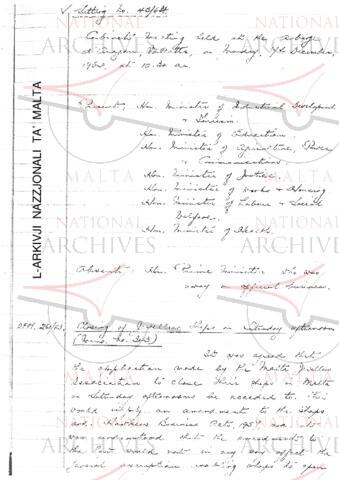 Sitting No. 43/64
Cabinet Meeting held at the Auberge
d'Aragon, Valletta, on Monday, 7th December,
at 10.30 am.
Present: Hon. Minister of Industrial Development
& Tourism.
Hon. Minister of Education.
Hon. Minister of Agriculture, Power
& Communications.
Hon. Minister of Justice.
Hon. Minister of Works & Housing
Hon. Minister of Labour & Social
Welfare.
Hon. Minister of Health.
Absent: Hon. Prime Minister who was
away on official business.
Closing of Jewellers Shops on Saturday afternoon
It was agreed that
the application made by the Malta Jewellers
Association to close their shops in Malta
on Saturday afternoons be acceded to. This
would imply an amendment to the Shops
and Business Act, 1957 and it
was understood that the amendment to
the law would not in any way affect the
enabling shops to open
L-ARKIVJI NAZZJONALI TA' MALTA
NATIONAL
ARCHIVES
MALTA